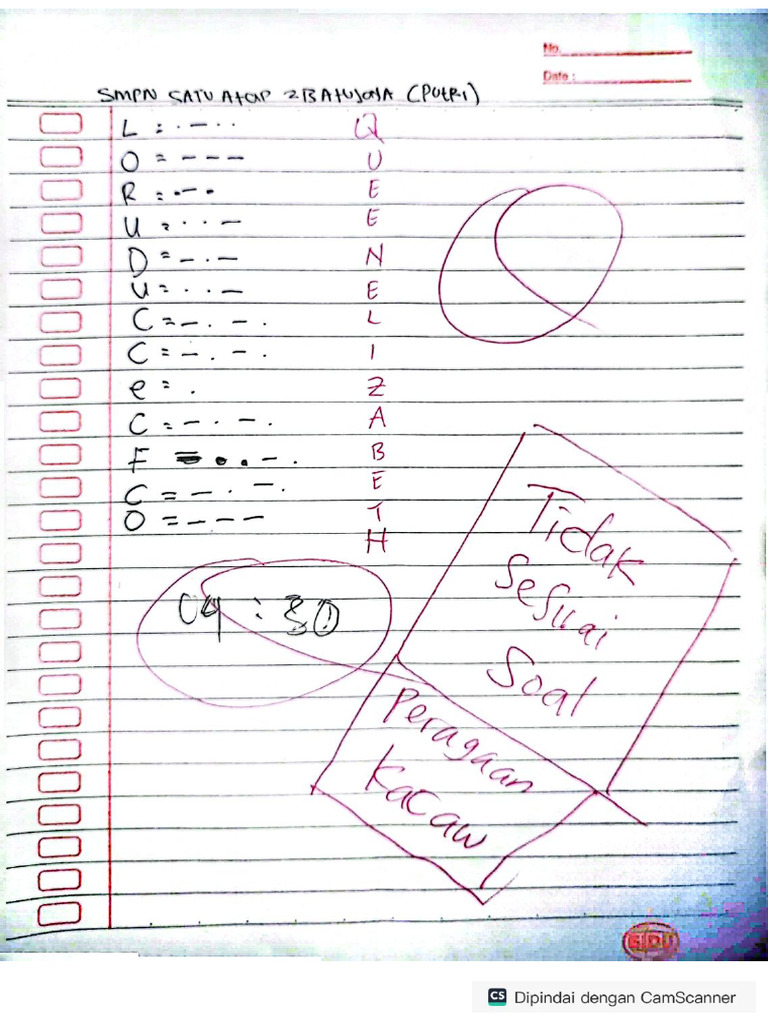 No.
Date :
SMPN SATU ATAP 2 BATUJAYA (PUTRI)
L = . - . . Q
O = - - - U
R = . - . E
U = . . - E
D = - . - N
U = . . - E
C = - . - . L
C = - . - . I
e = . Z
C = - . - . A
F = . . - . B
C = - . - . E
O = - - - T
H
04 : 30
Tidak
Sesuai
Soal
Peragaan
Kacaw
SIDU
CS Dipindai dengan CamScanner